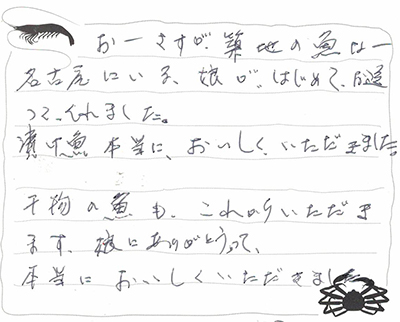 おーさすが、築地の魚はー
名古屋にいる、娘が、はじめて、送
って、くれました。
漬け魚 本当に、おいしく、いただきました。
干物の魚も、これからいただき
ます、娘にありがとうって、
本当においしくいただきました